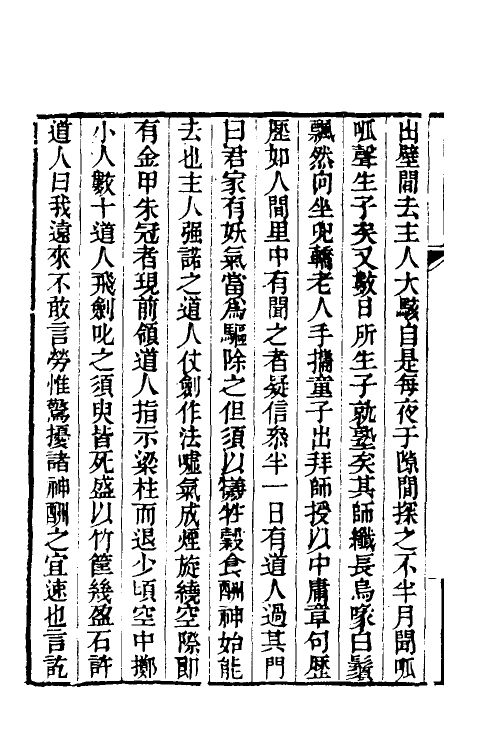 出壁間去主人大駭自是每夜于隙間探之不半月聞呱
呱聲生子矣又數日所生子就塾矣其師纖長烏喙白鬚
飄然向坐兜轎老人手攜童子出拜師授以中庸章句歷
歷如人間里中有聞之者疑信叅半一日有道人過其門
曰君家有妖氣當爲驅除之但須以犧牲穀食酬神始能
去也主人强諾之道人仗劍作法噓氣成煙旋繞空際卽
有金甲朱冠者現前領道人指示梁柱而退少頃空中擲
小人數十道人飛劍叱之須臾皆死盛以竹筐幾盈石許
道人曰我遠來不敢言勞惟驚擾諸神酬之宜速也言訖